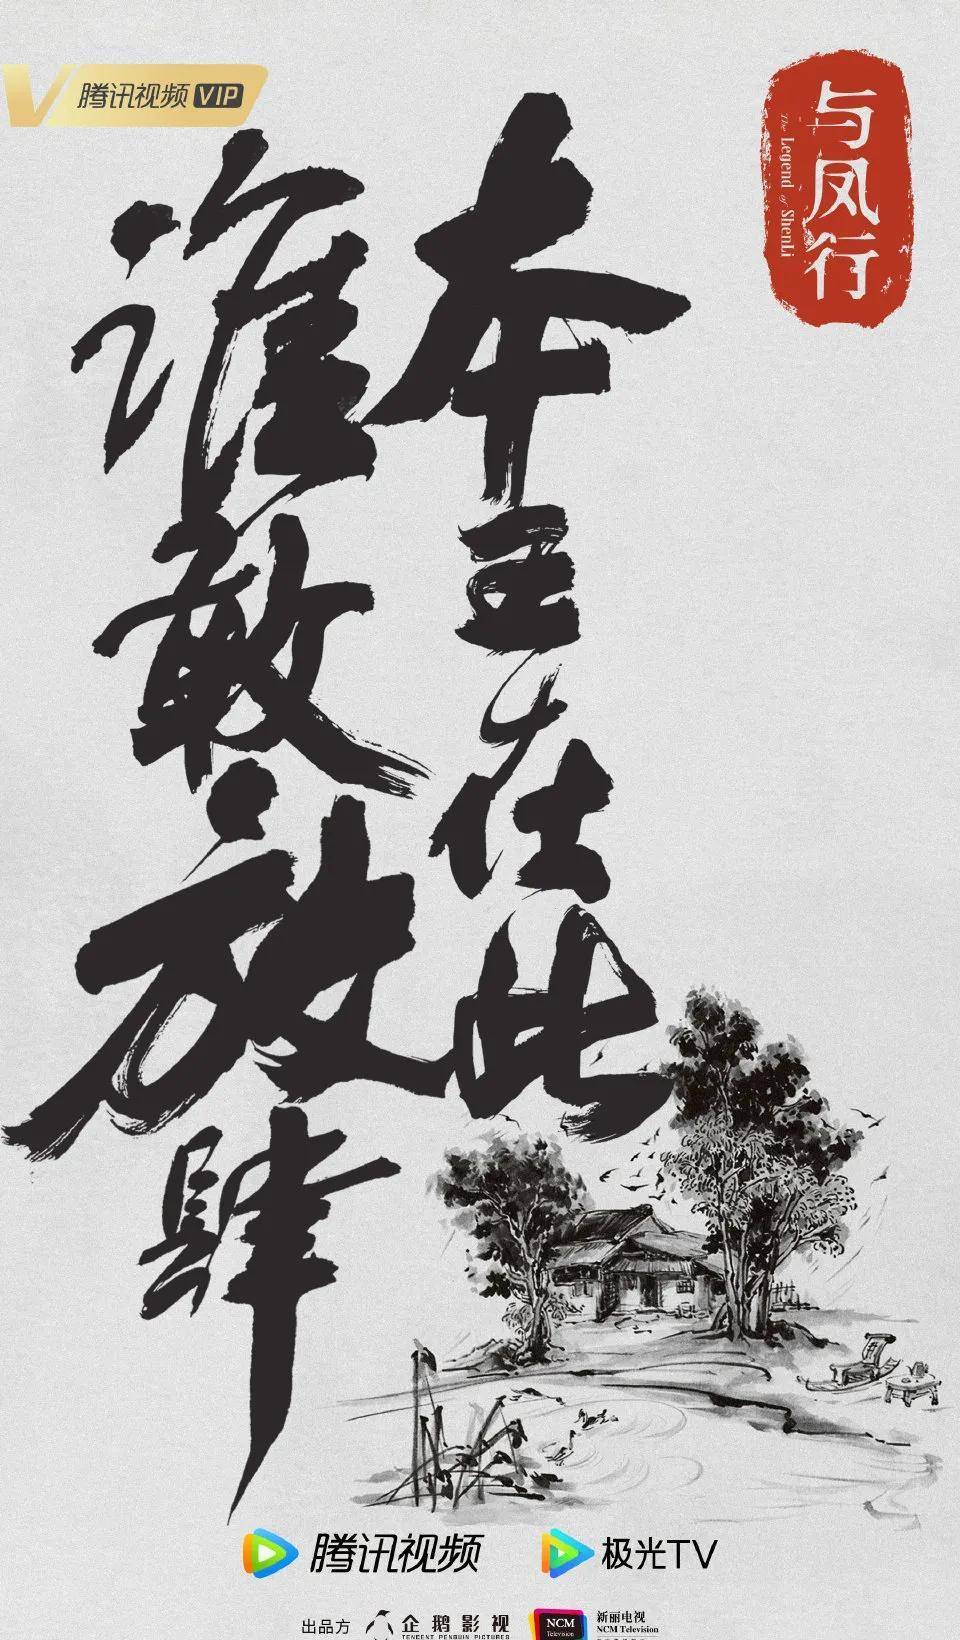 腾讯视频 VIP
与凤行
The Legend of ShenLi
本王在此
谁敢放肆
腾讯视频
极光TV
出品方
企鹅影视
TENCENT PENGUIN PICTURES
NCM
Television
新丽电视
NCM Television